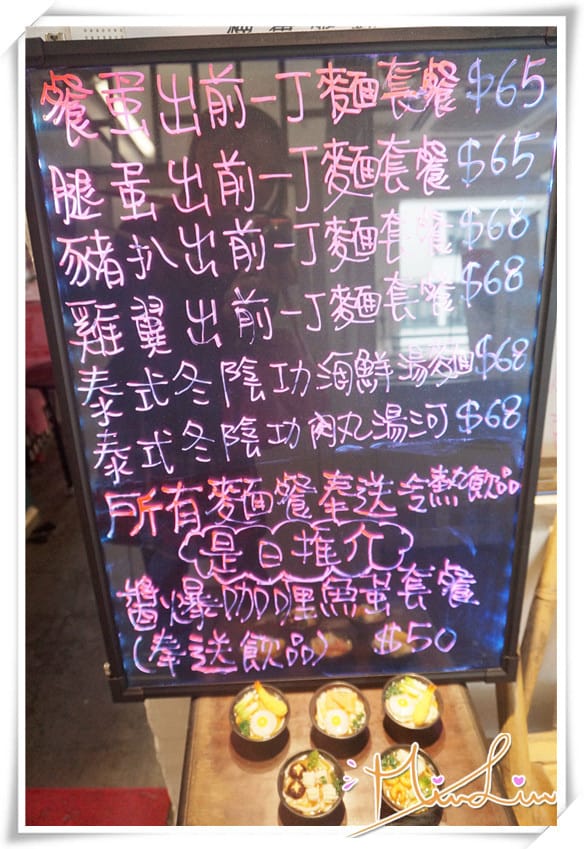 餐蛋出前一丁麵套餐 $65
腿蛋出前一丁麵套餐 $65
豬扒出前一丁麵套餐 $68
雞翼出前一丁麵套餐 $68
泰式冬陰功海鮮湯麵 $68
泰式冬陰功肉丸湯河 $68
所有麵餐奉送冷熱飲品
是日推介
醬爆咖喱魚蛋套餐
(奉送飲品) $50
MinLin